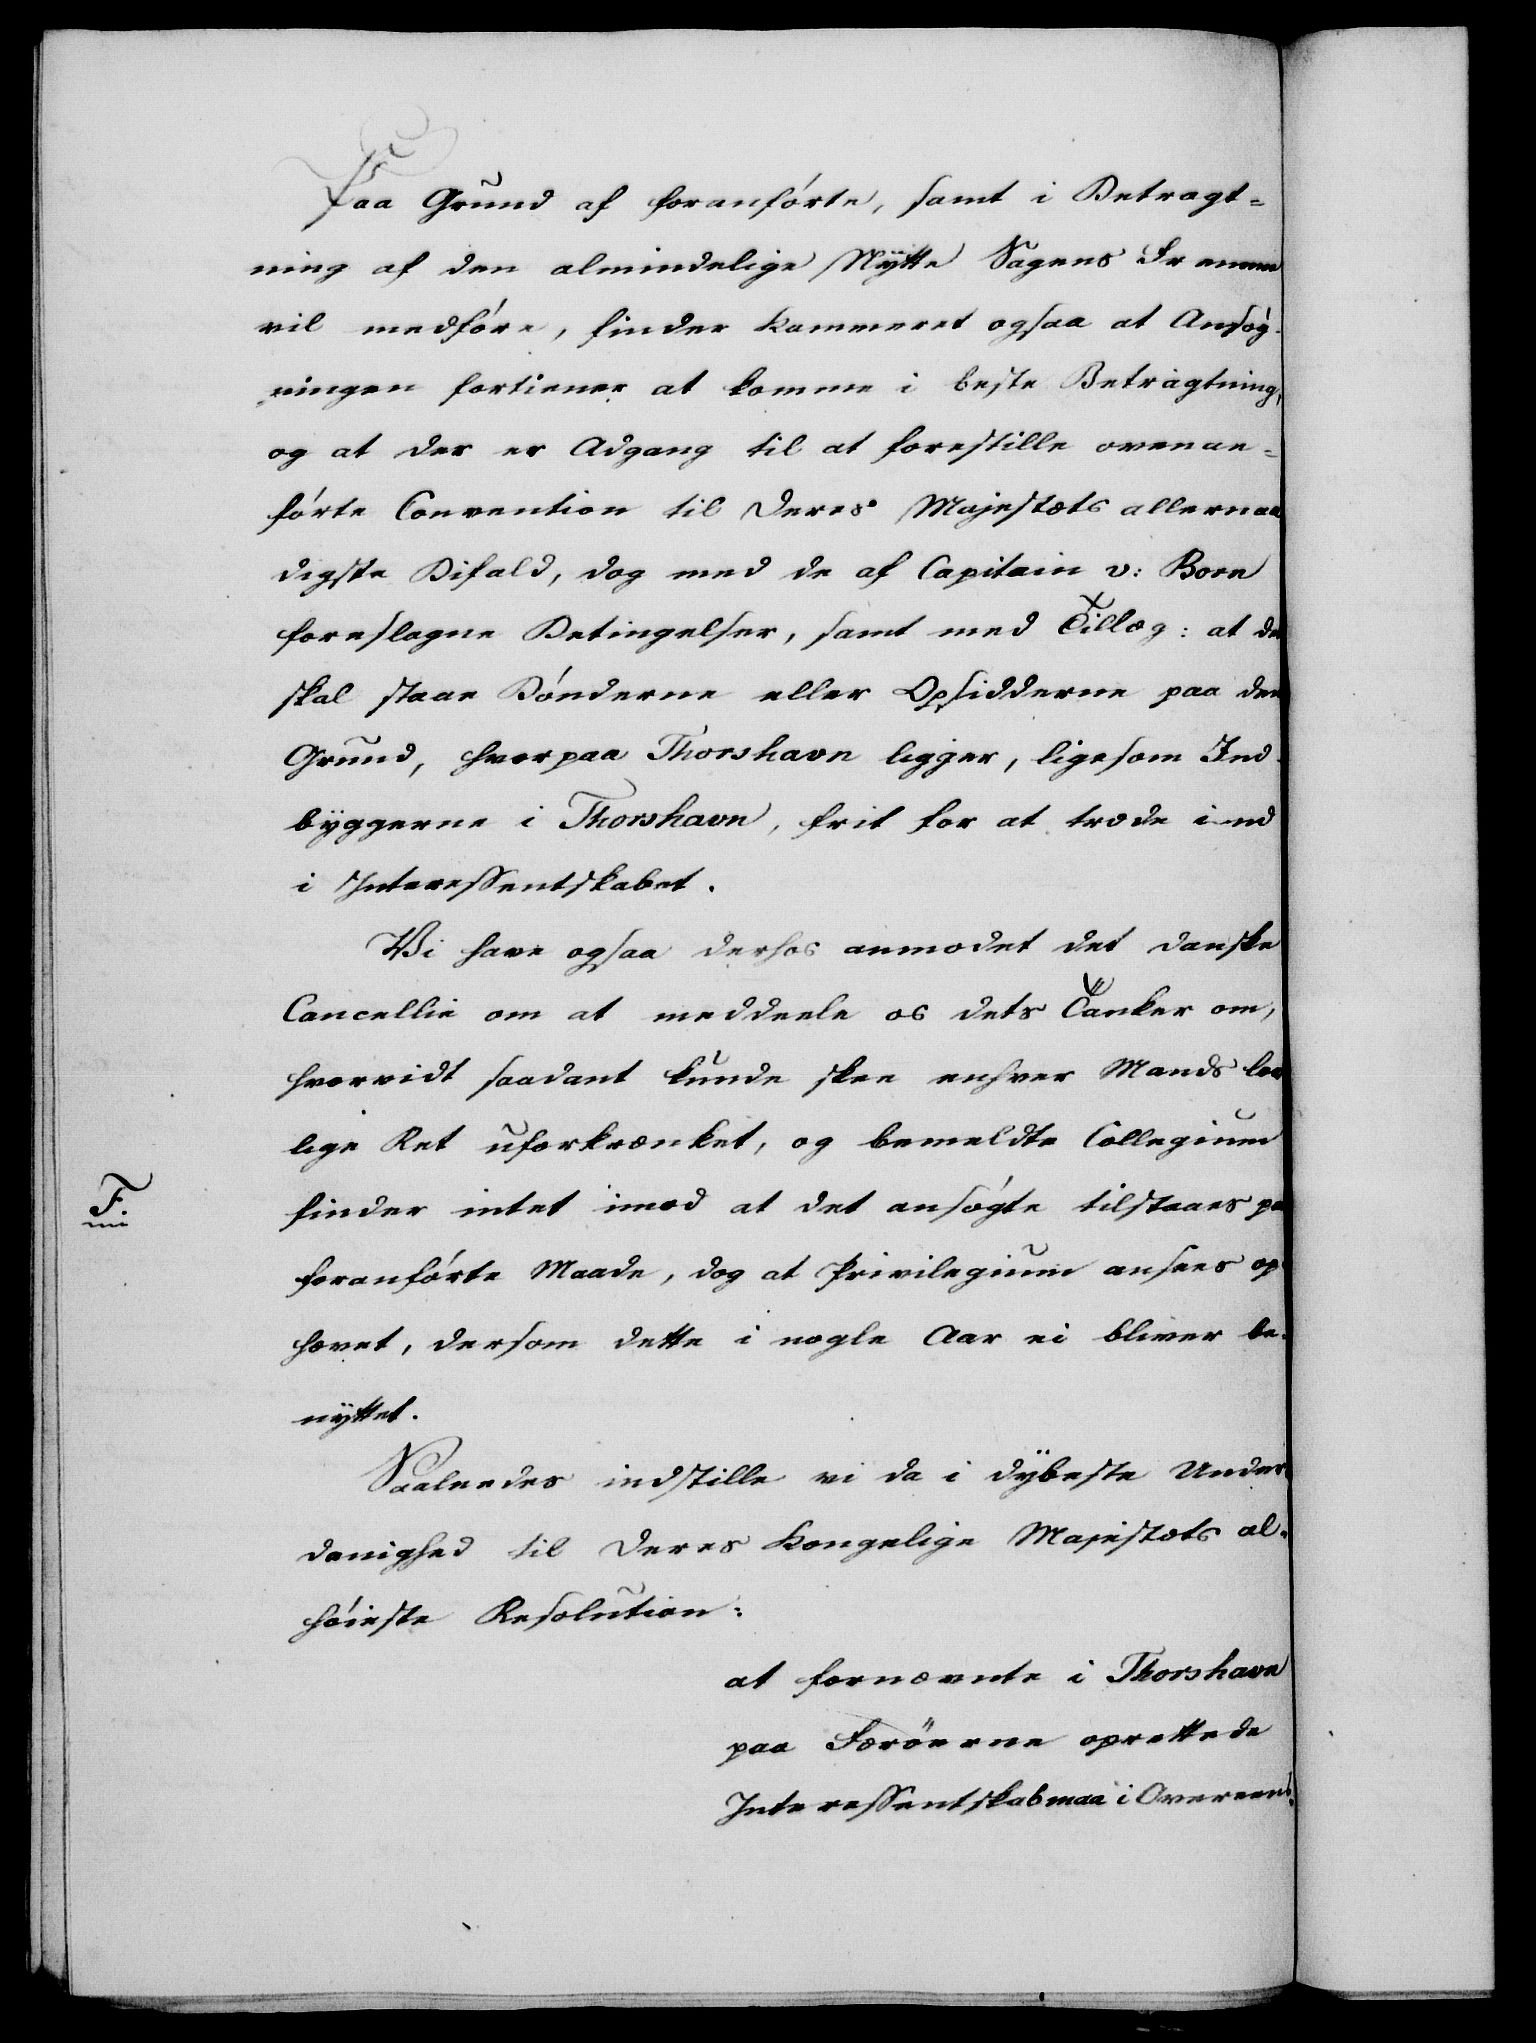 Paa Grund af foranførte, samt i Betragt-
ning af den almindelige Nÿtte Sagens Fremme
vil medføre, finder Kammeret ogsaa at Ansøg-
ningen fortiener at komme i beste Betragtning,
og at der er Adgang til at forestille ovenan-
førte Convention til Deres Majestæts allernaa
digste Bifald, dog med de af Capitain v: Born
foreslagne Betingelser, samt med Tillæg: at de
skal staae Bønderne eller Opsidderne paa den
Grund, hvorpaa Thorshavn ligger, ligesom Ind-
bÿggerne i Thorshavn, frit for at træde ind
i Interessentskabet.
Vi have ogsaa derhos anmodet det danske
Cancellie om at meddeele os dets Tanker om,
hvorvidt saadant kunde skee enhver Mands lov
lige Ret uforkrænket, og bemeldte Collegium
F.
finder intet imod at det ansøgte tilstaaes pa
foranførte Maade, dog at Privilegium ansees op-
hævet, dersom dette i nogle Aar ei bliver be-
nÿttet.
Saaleedes indstille vi da i dÿbeste Under
danighed til Deres Kongelige Majestæts al-
høieste Resolution:
at fornævnte i Thorshavn
paa Færöerne oprettede
Interessentskab maa i Overeens-